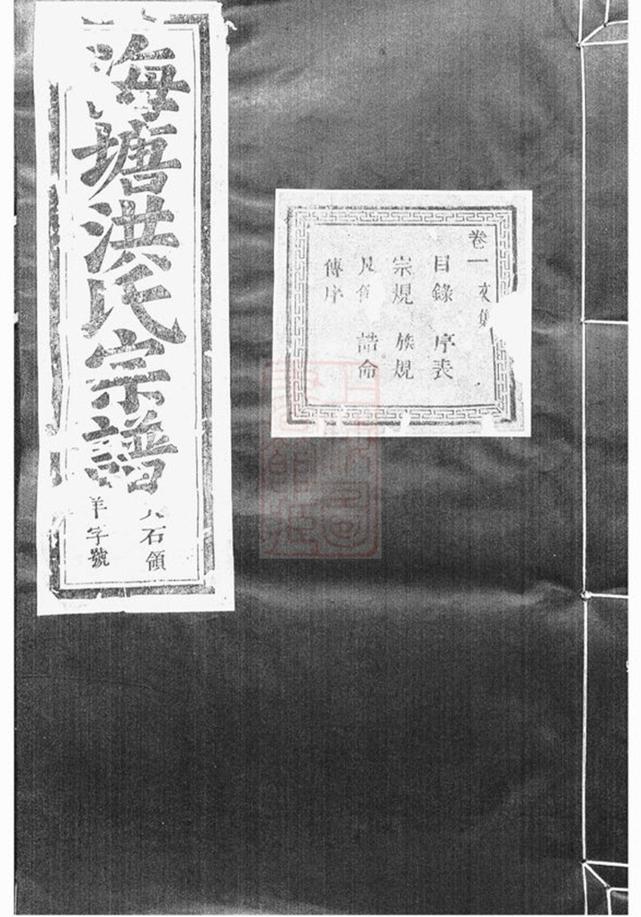 海塘洪氏宗譜
石領
羊字號
卷一
目錄 序表
宗規 族規
誥命
傳序